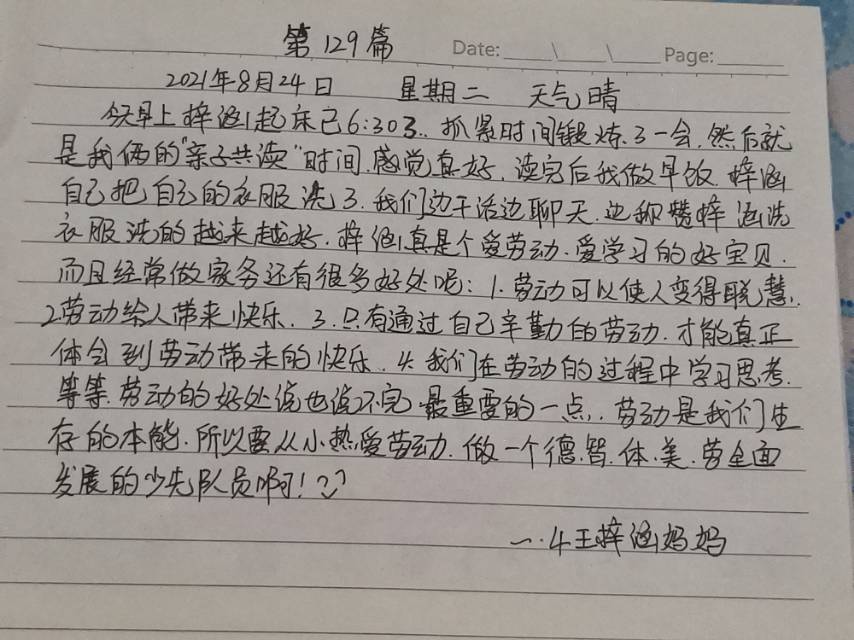 第129篇 Date:____\____\____ Page:______
2021年8月24日 星期二 天气晴
今天早上梓涵起床已6:30了..抓紧时间锻炼了一会,然后就
是我俩的"亲子共读"时间.感觉真好.读完后我做早饭.梓涵
自己把自己的衣服洗了.我们边干活边聊天.边称赞梓涵洗
衣服洗的越来越好.梓涵真是个爱劳动.爱学习的好宝贝.
而且经常做家务还有很多好处呢:1.劳动可以使人变得聪慧.
2.劳动给人带来快乐.3.只有通过自己辛勤的劳动.才能真正
体会到劳动带来的快乐.4.我们在劳动的过程中学习思考.
等等.劳动的好处说也说不完.最重要的一点..劳动是我们生
存的本能.所以要从小热爱劳动.做一个德.智.体.美.劳全面
发展的少先队员啊!
一.4王梓涵妈妈